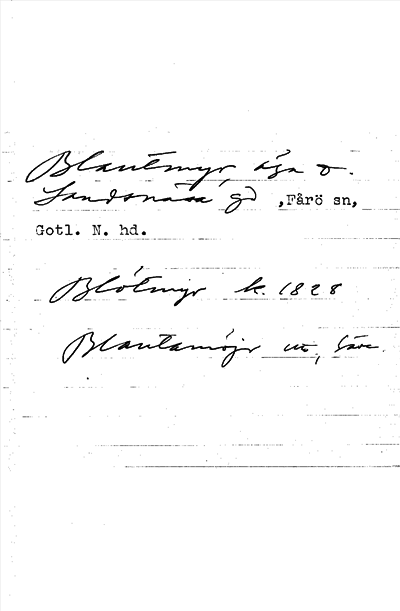 Blautmyr, äga o.
Sandsnäsa gd ,Fårö sn,
Gotl. N. hd.
Blótmyr k. 1828
Blautamöjr utt, Säve